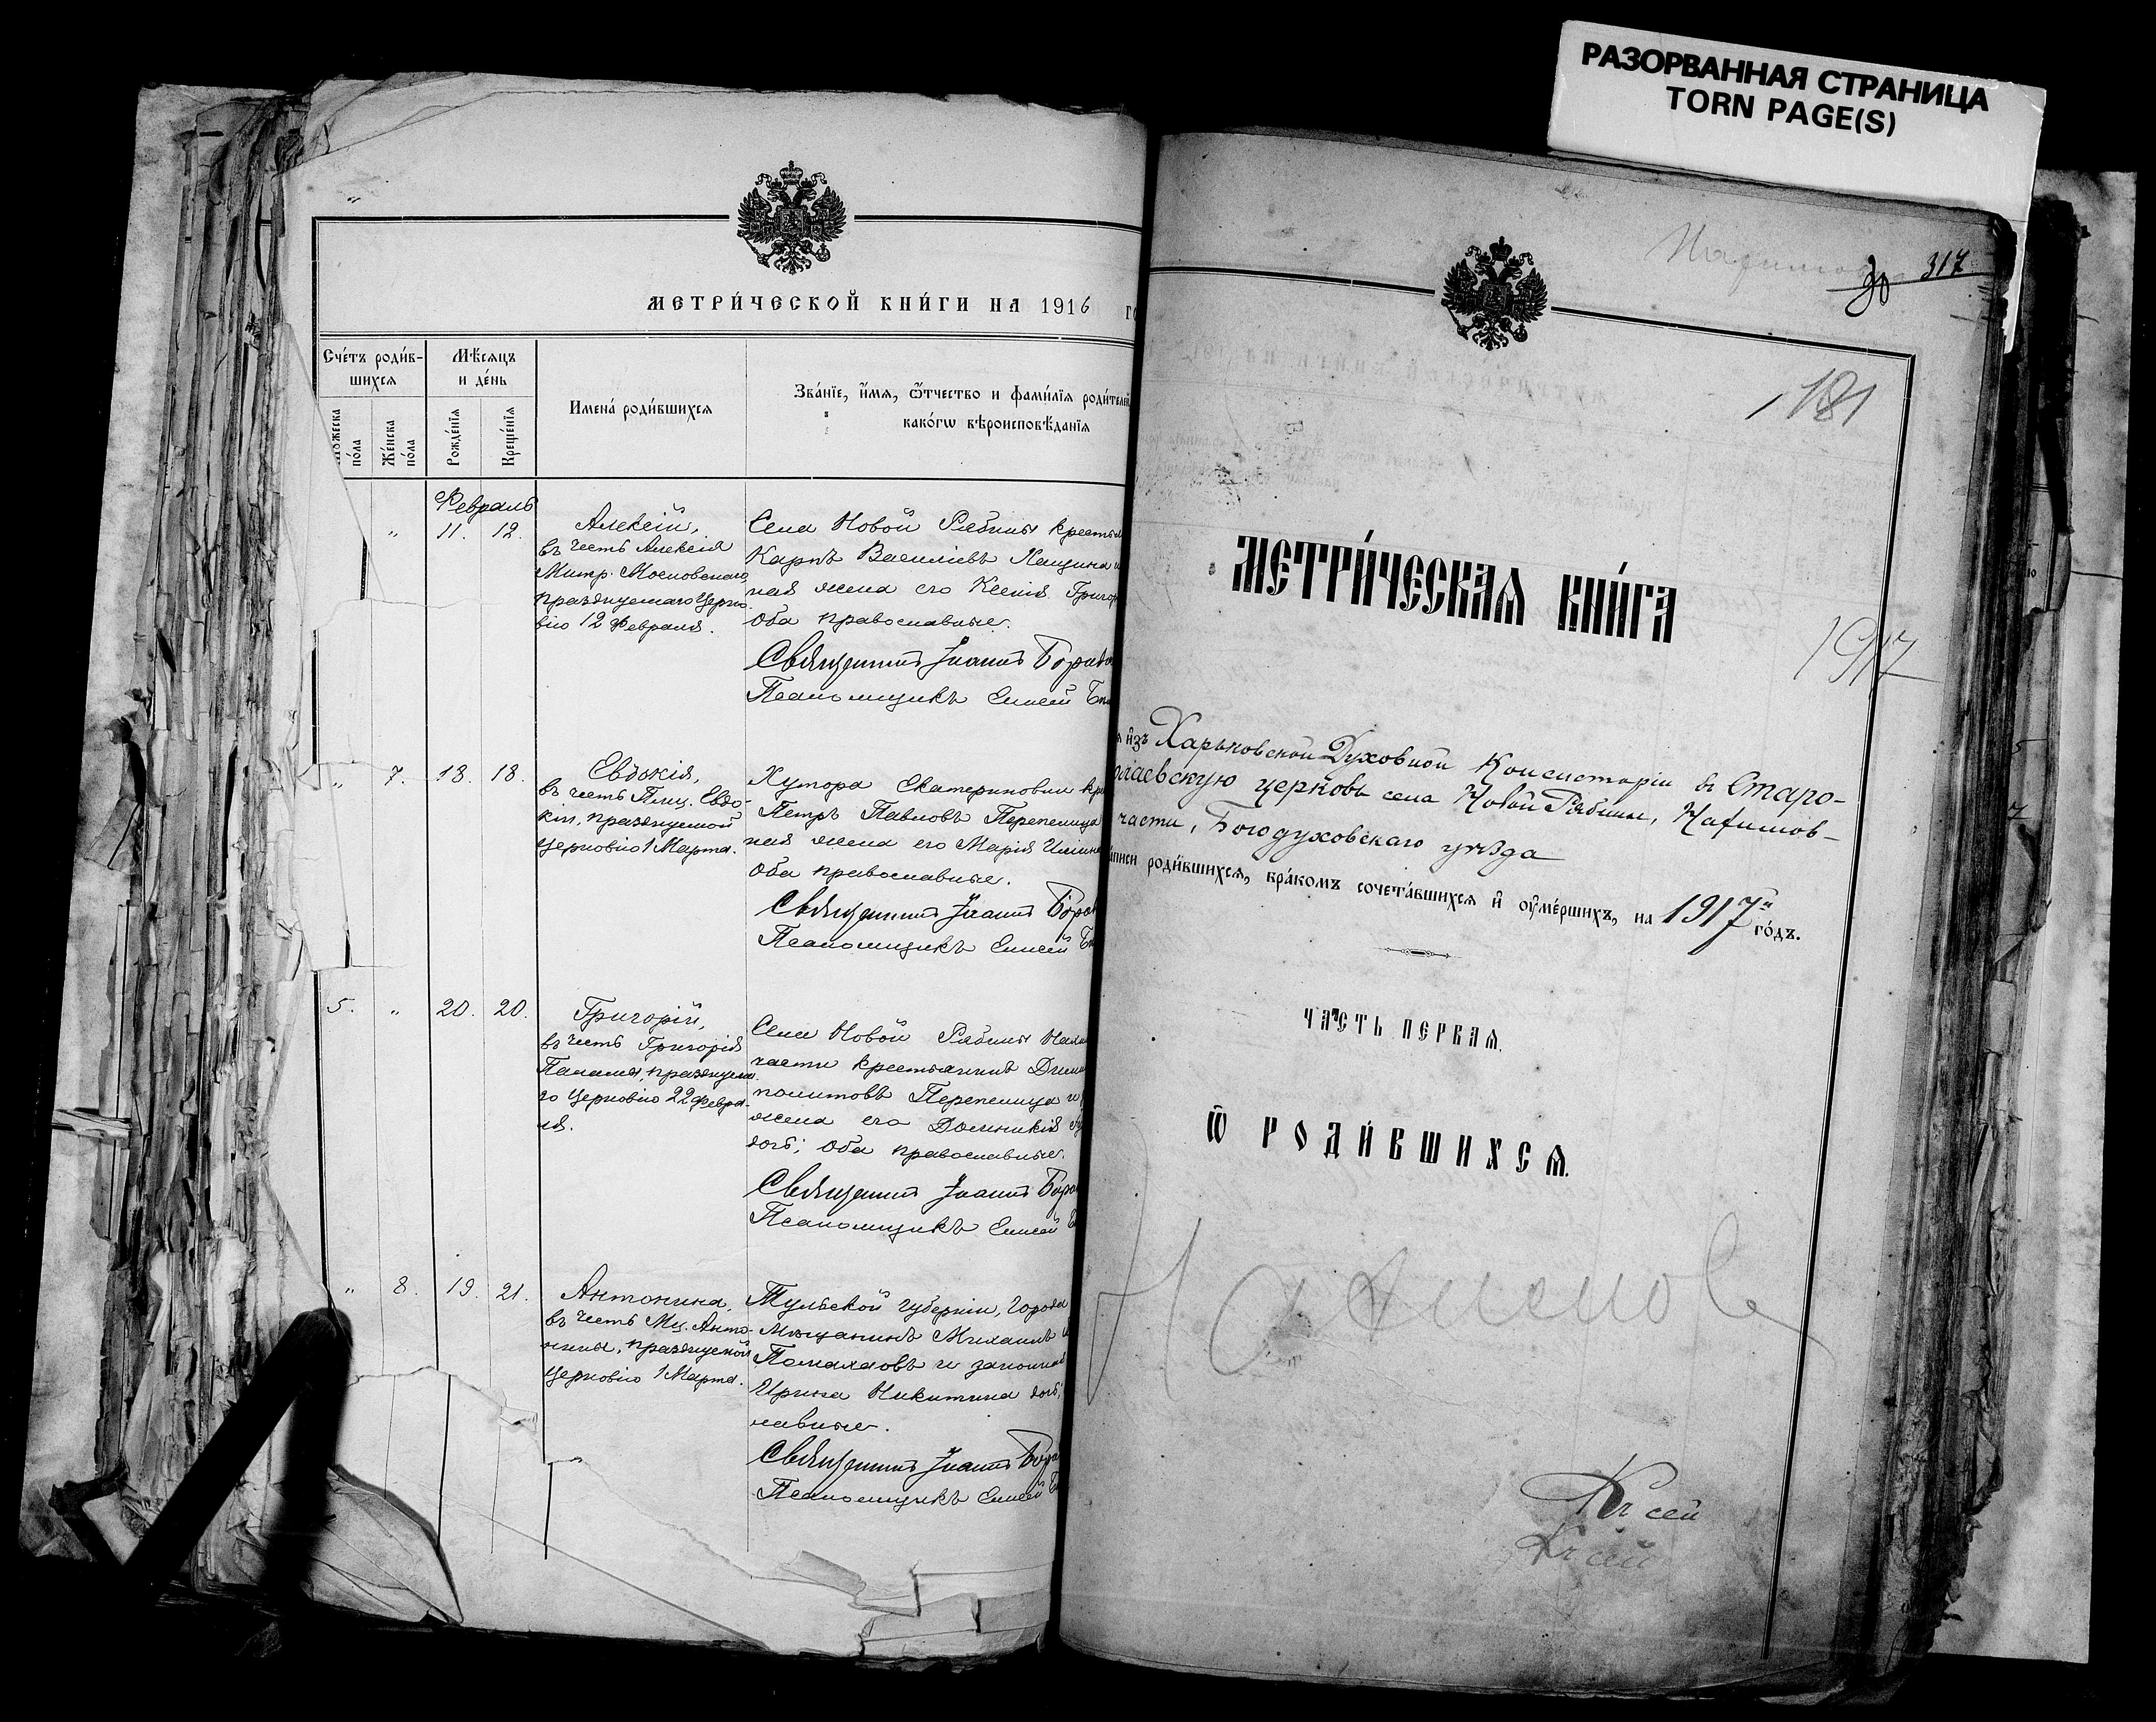 РАЗОРВАННАЯ СТРАНИЦА
TORN PAGE(S)
МЕТРИ́ЧЕСКОЙ КНИ́ГИ НА 1916
Сче́тъ роди́в-
шихсѧ
Мѣ́сѧцъ
и де́нь
Жéнска
пóла
пóла
Рождéнїѧ
Крещéнїѧ
Именá роди́вшихсѧ
Звáнїе, и́мѧ, ѻ҆́тчество и фами́лїѧ роди́телей,
какóгѡ вѣроисповѣ́данїѧ
Февраль
" 11. 12.
Алексій,
въ честь Алексія
Митр. Московскаго,
празднуемаго Церко-
вію 12 Февраля.
Села Новой Рябины
Карпъ Василіевъ
ная жена его Ксенія
Оба православные.
Священникъ Іоаннъ
Псаломщикъ Елисей
" 7. 18. 18.
Евдокія,
въ честь Прмц. Евдо-
кіи, празднуемой
Церковію 1 Марта.
Хутора Екатериновки
Петръ Павловъ Перепелица
ная жена его Марія
Оба православные.
Священникъ Іоаннъ
Псаломщикъ Елисей
5. " 20. 20.
Григорій,
въ честь Григорія
Паламы, празднуема-
го Церковію 22 Февра-
ля.
Села Новой Рябины
части крестьянинъ
политовъ Перепелица и
жена его Домникія
дочь; Оба православные.
Священникъ Іоаннъ
Псаломщикъ Елисей
" 8. 19. 21.
Антонина,
въ честь Мц. Анто-
нины, празднуемой
Церковію 1 Марта.
Тульской губерніи, Города
мѣщанинъ Михаилъ
и законная
Ирина Никитина дочь;
лавные.
Священникъ Іоаннъ
Псаломщикъ Елисей
317
30
181
МЕТРИ́ЧЕСКАѦ КНИ́ГА
1917
и҆зъ Харьковской Духовной Консисторіи въ Старо-
олаевскую церковь села Новой Рябины, Нахимов-
части, Богодуховскаго уѣзда
роди́вшихсѧ, брáкомъ сочетáвшихсѧ и҆ ᲂу҆мéршихъ, на 1917й гóдъ.
ЧАСТЬ ПЕРВАѦ.
Ѽ РОДИ́ВШИХСѦ.